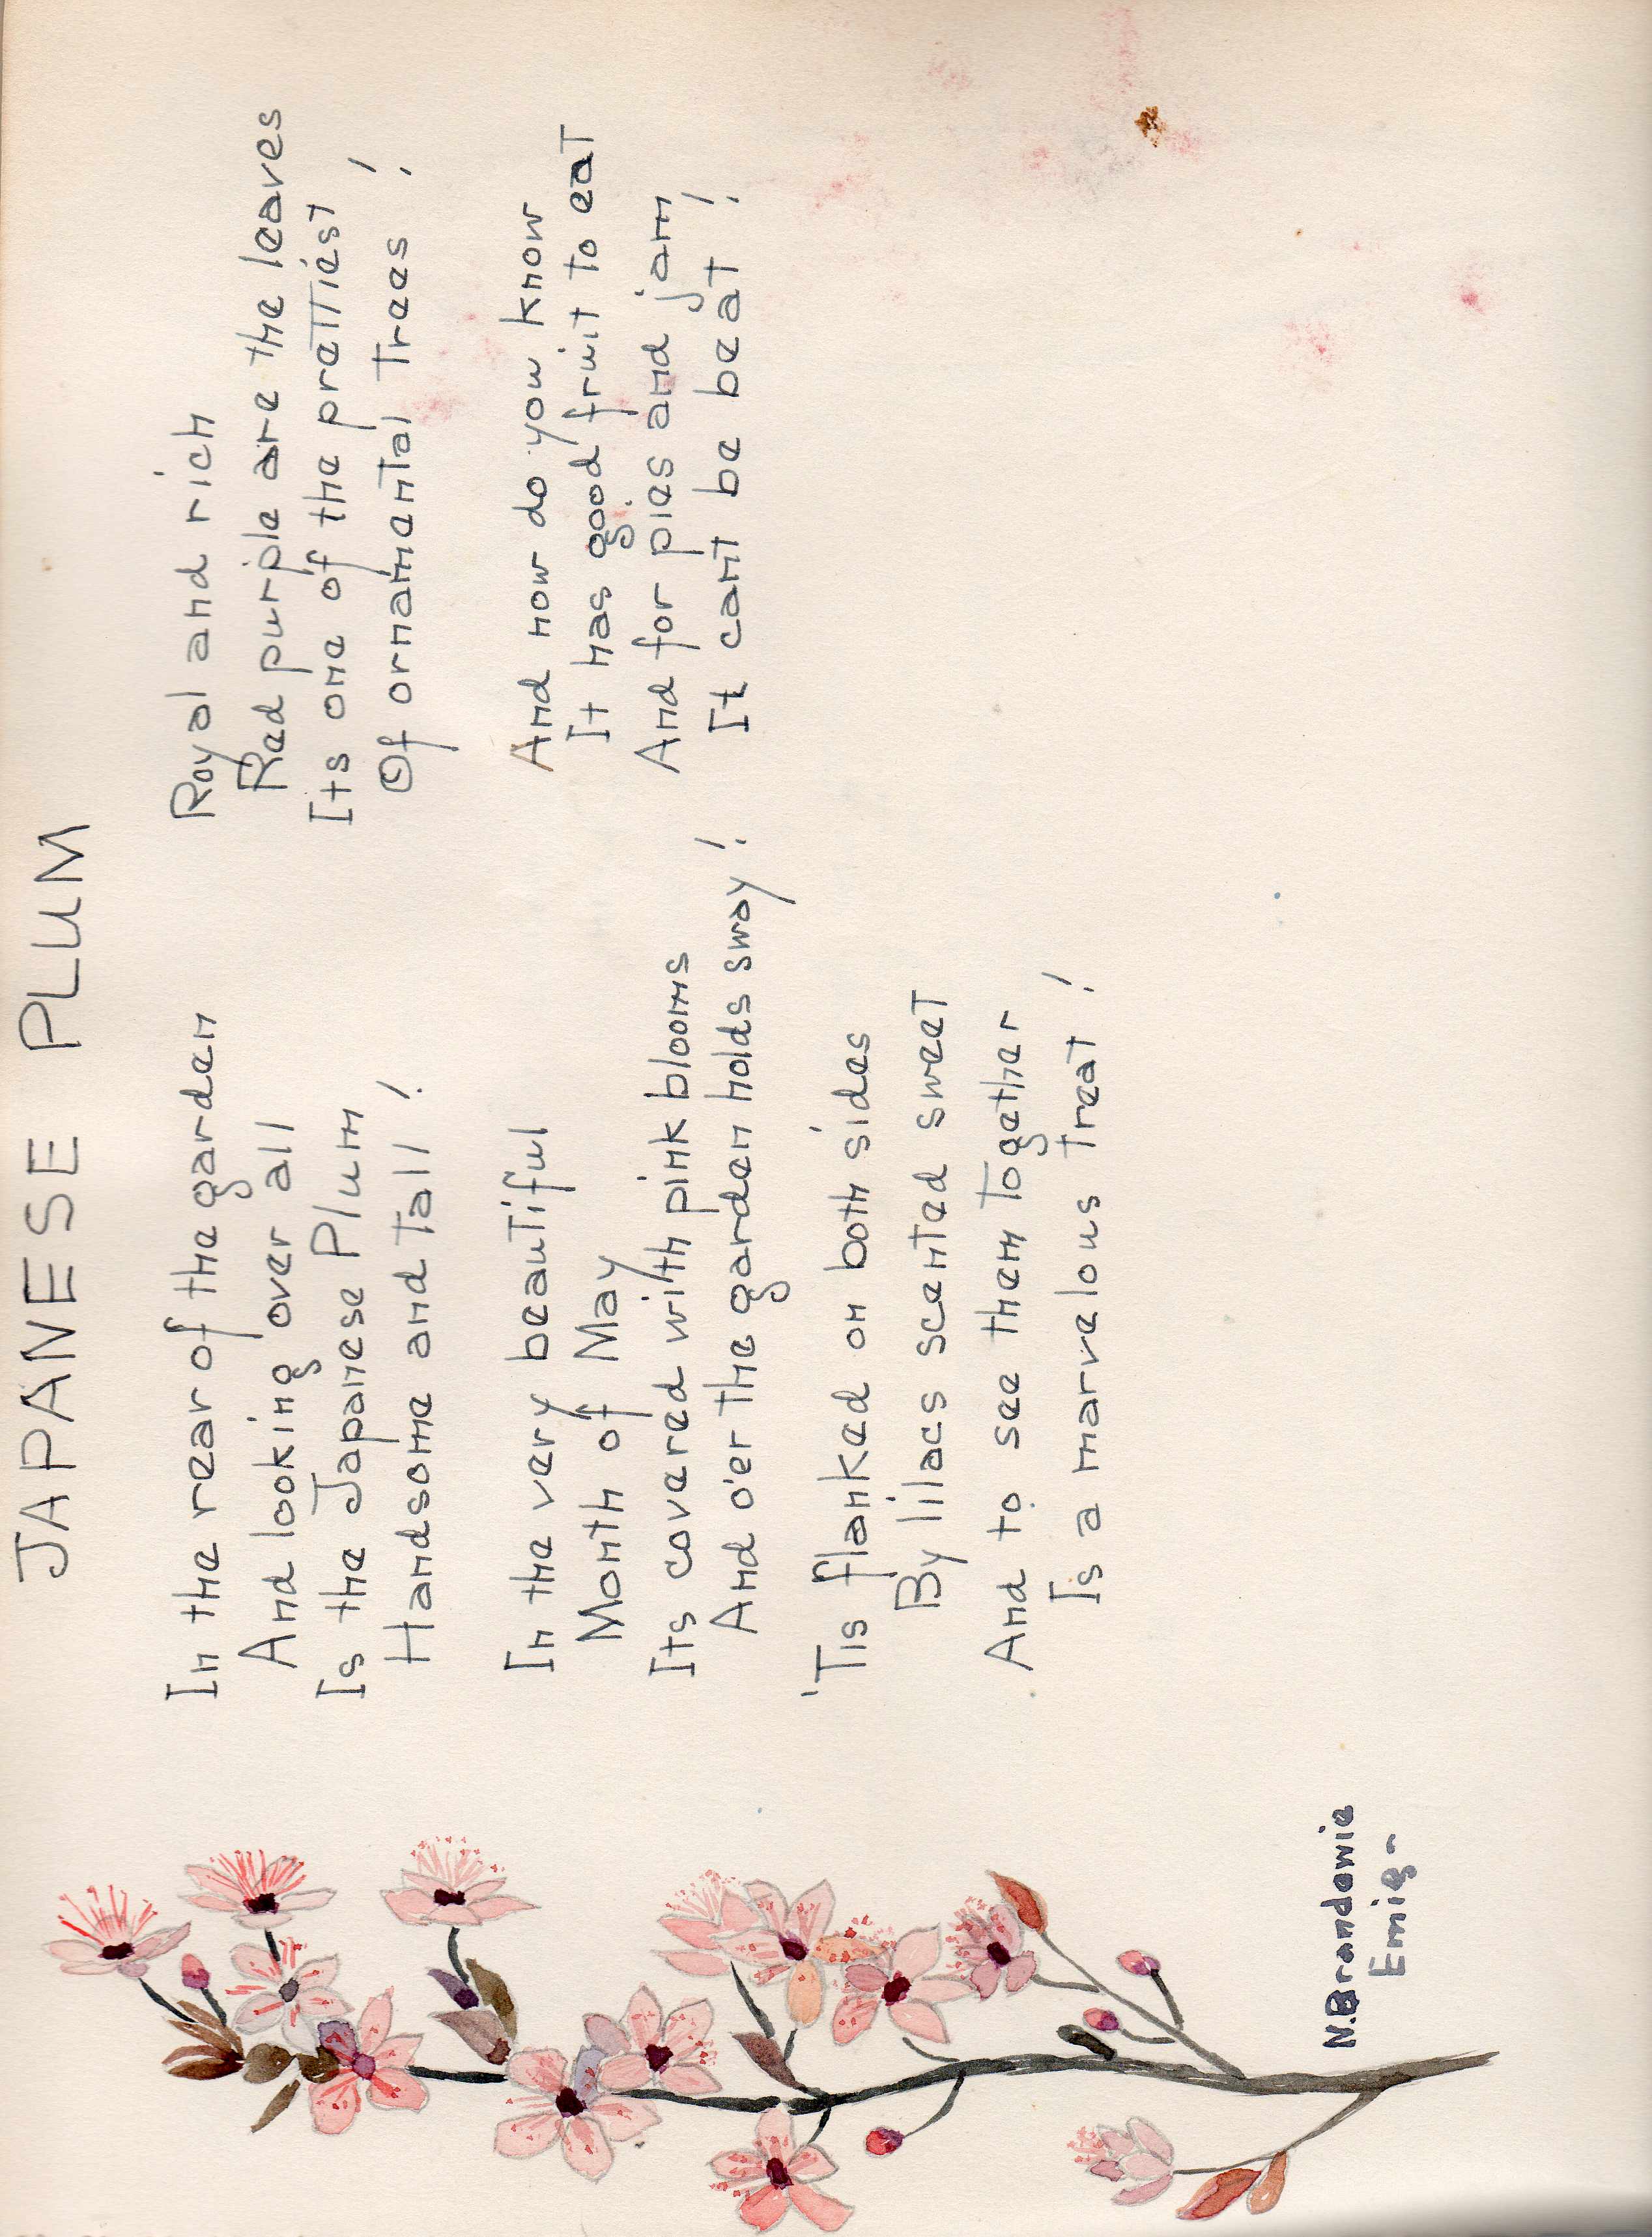 JAPANESE PLUM
In the rear of the garden
And looking over all
Is the Japanese Plum
Handsome and tall!
In the very beautiful
Month of May
Its covered with pink blooms
And o'er the garden holds sway!
'Tis flanked on both sides
By lilacs scented sweet
And to see them together
Is a marvelous treat!
Royal and rich
Red purple are the leaves
Its one of the prettiest
Of ornamental trees!
And now do you know
It has good fruit to eat
And for pies and jam
It cant be beat!
N. Brandewie
Emig-